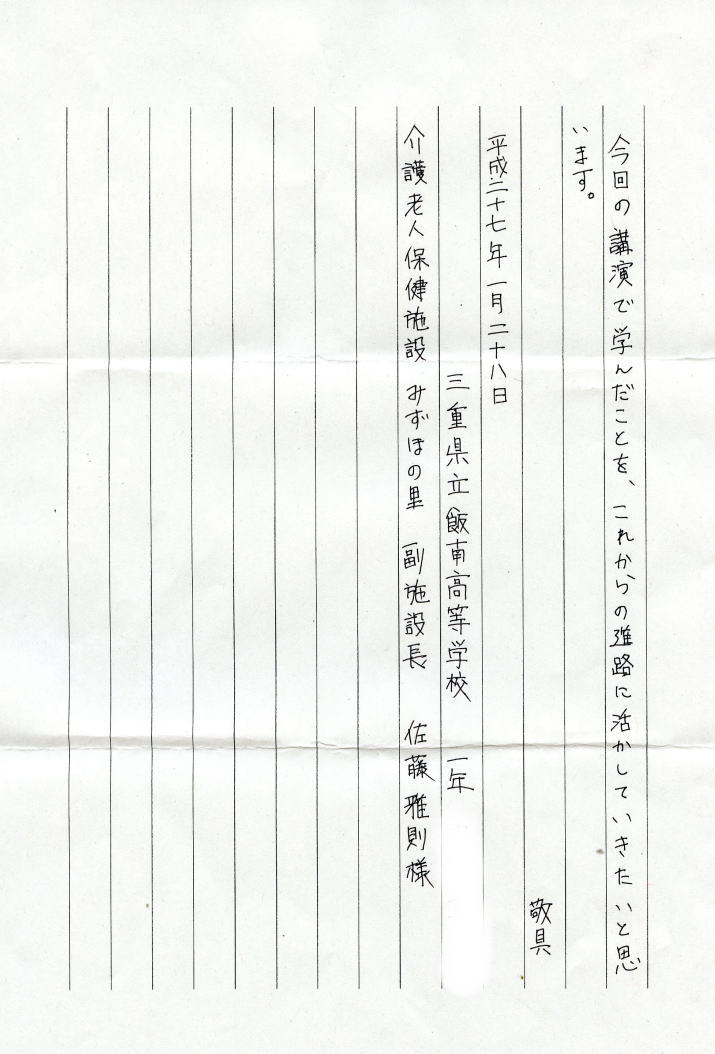 今回の講演で学んだことを、これからの進路に活かしていきたいと思
います。
敬具
平成二十七年一月二十八日
三重県立飯南高等学校 一年
介護老人保健施設 みずほの里 副施設長 佐藤雅則様